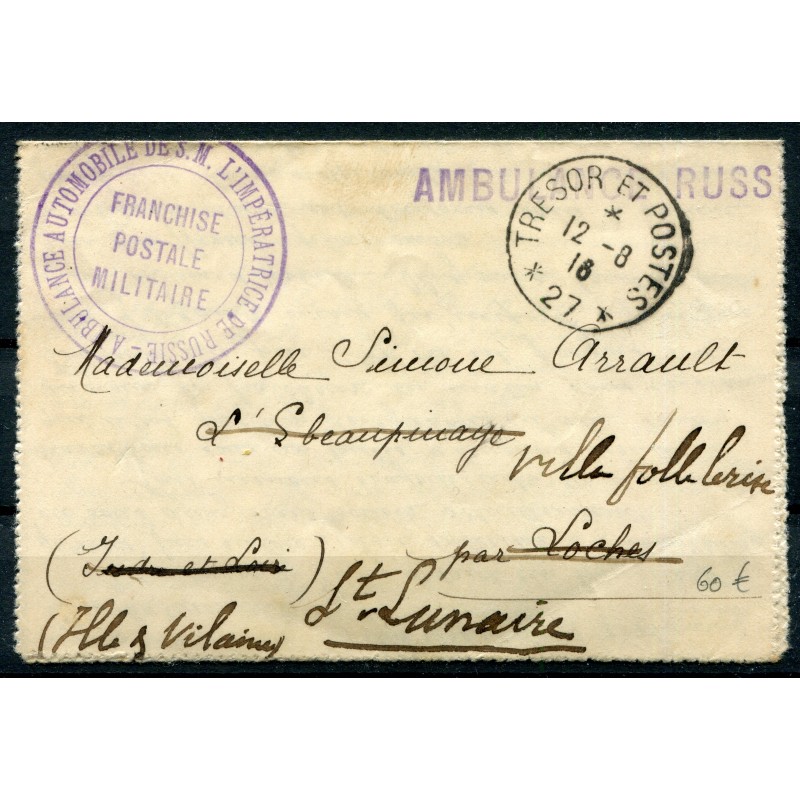 AMBULANCE AUTOMOBILE DE S.M. L'IMPÉRATRICE DE RUSSIE -
FRANCHISE
POSTALE
MILITAIRE
AMBULANCE RUSS
TRESOR ET POSTES
12 - 8
16
* 27 *
Mademoiselle Simone Arrault
villa folle brise
par Loches
(Indre et Loire)
60 €
St Lunaire
(Ille & Vilaine)